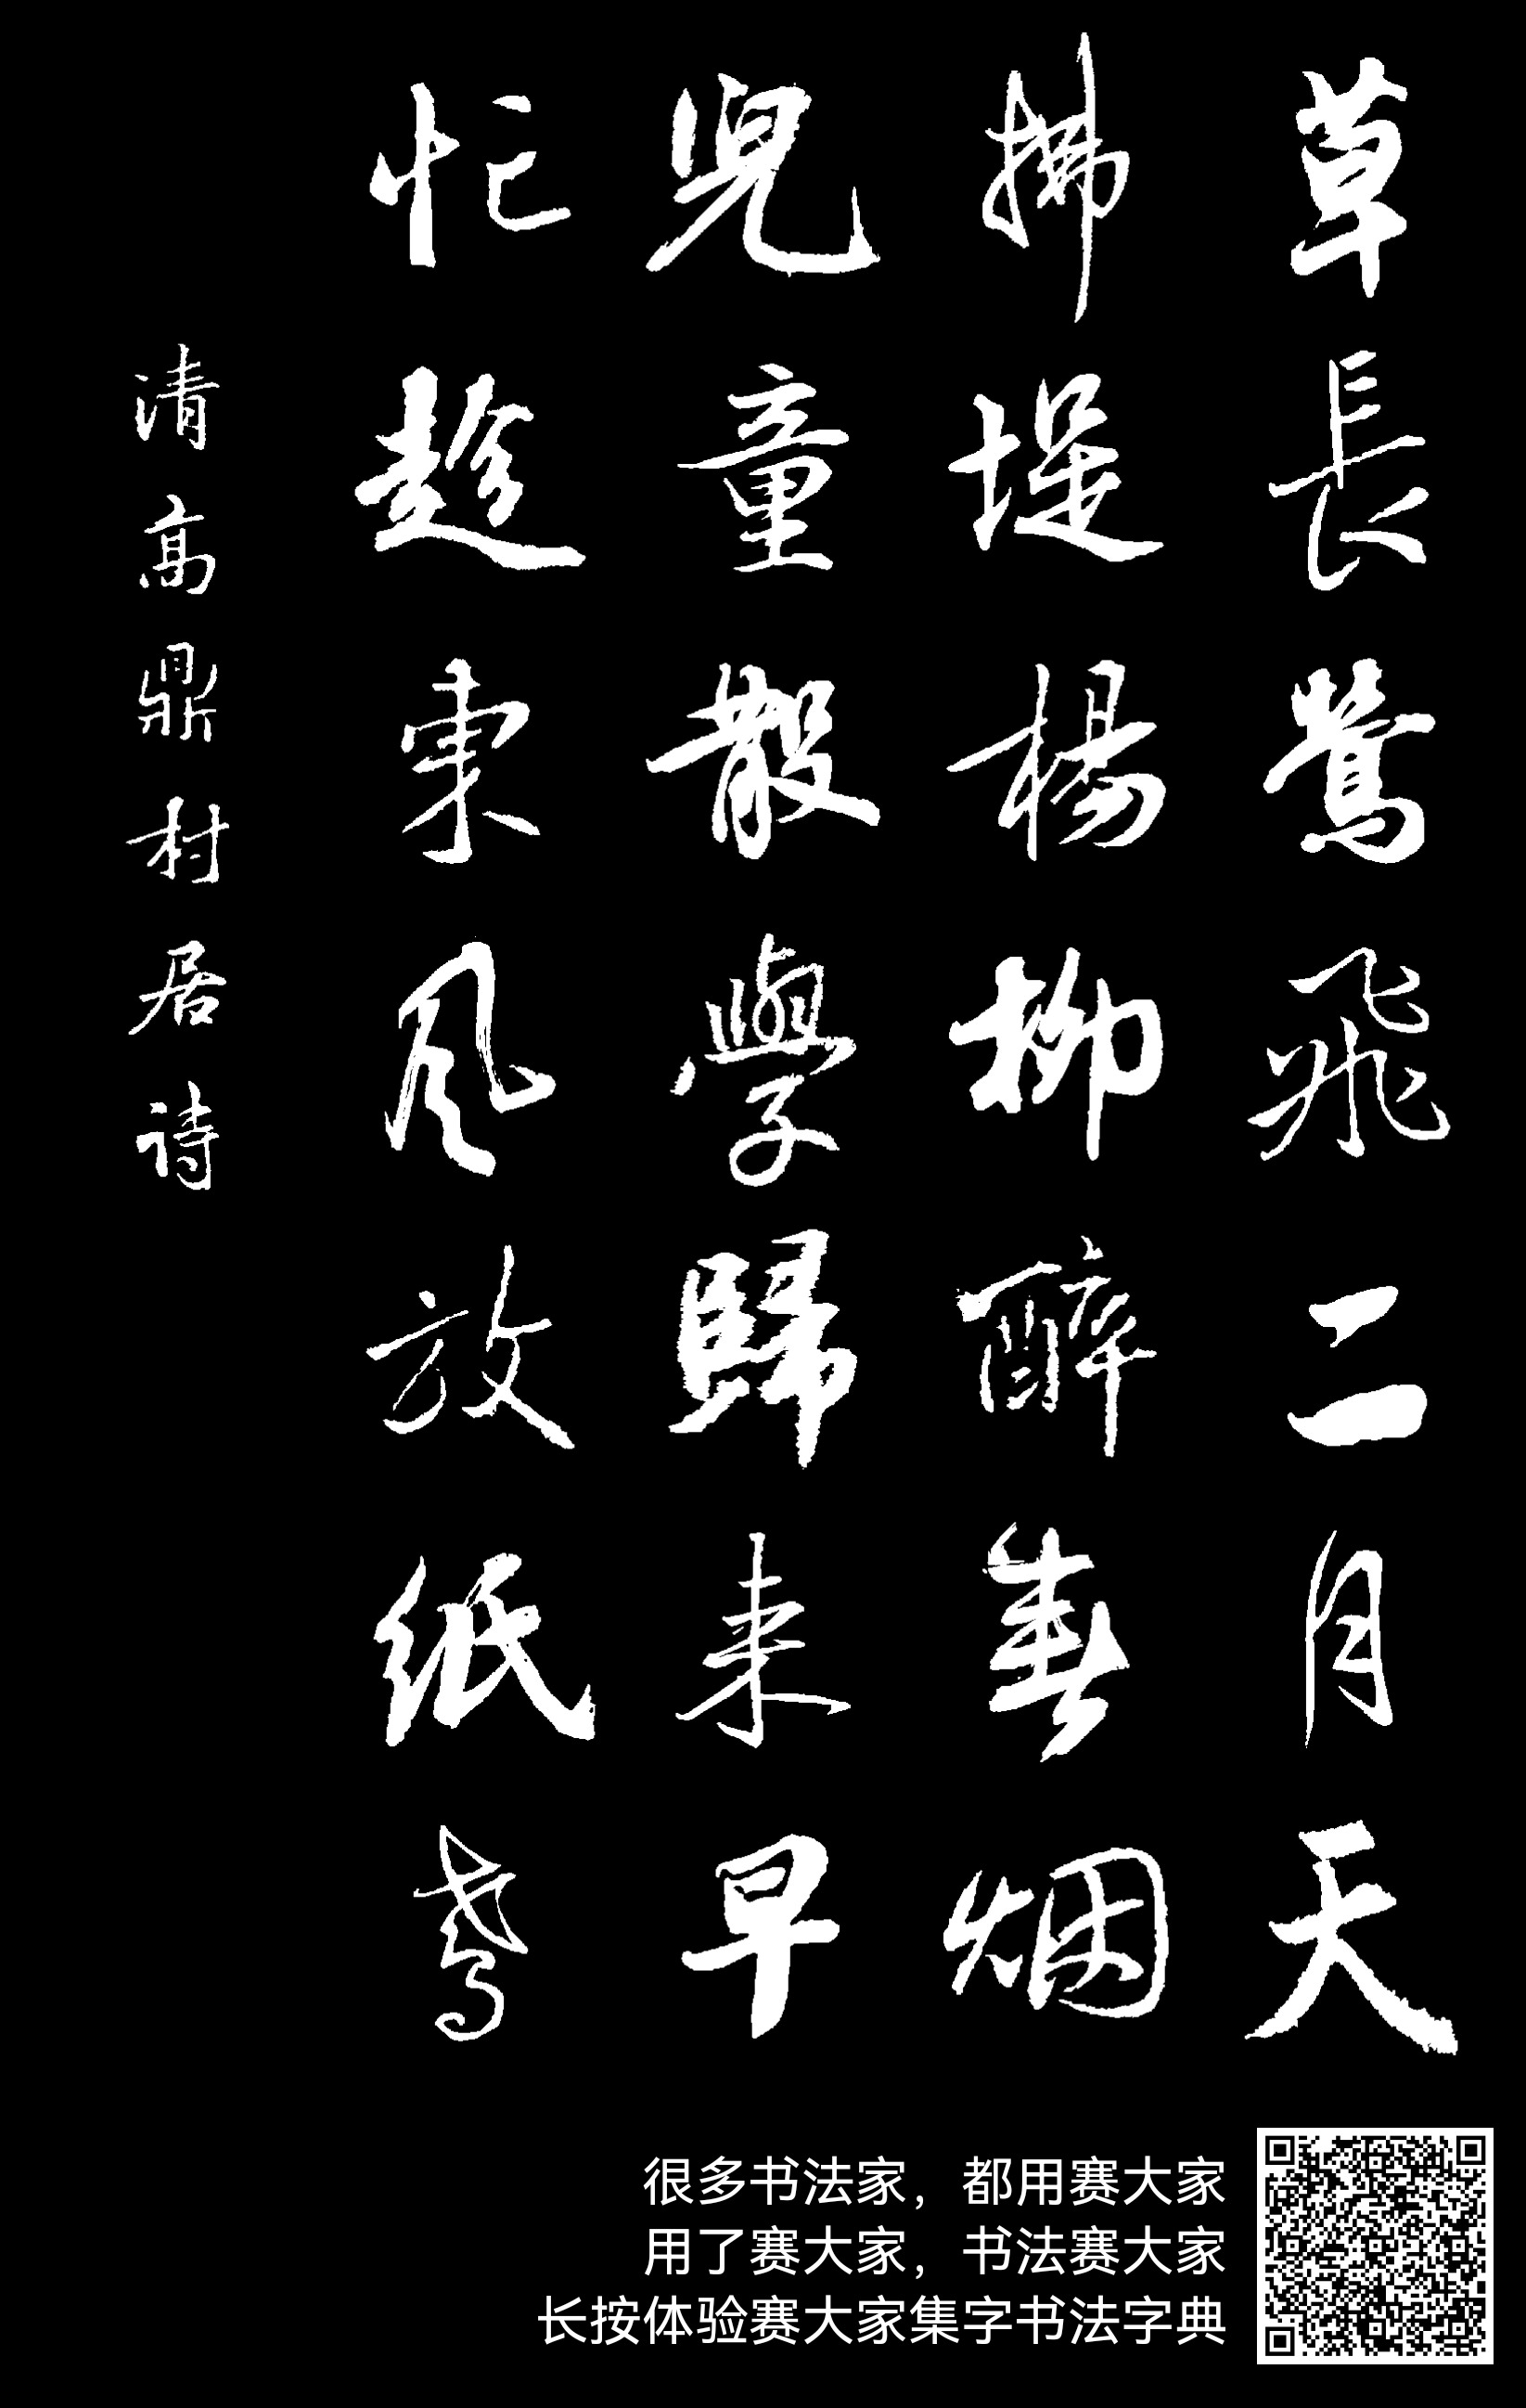 草長鶯飛二月天
拂堤楊柳醉春烟
兒童散學歸来早
忙趁東风放纸鸢
清高鼎村居诗
很多书法家，都用赛大家
用了赛大家，书法赛大家
长按体验赛大家集字书法字典